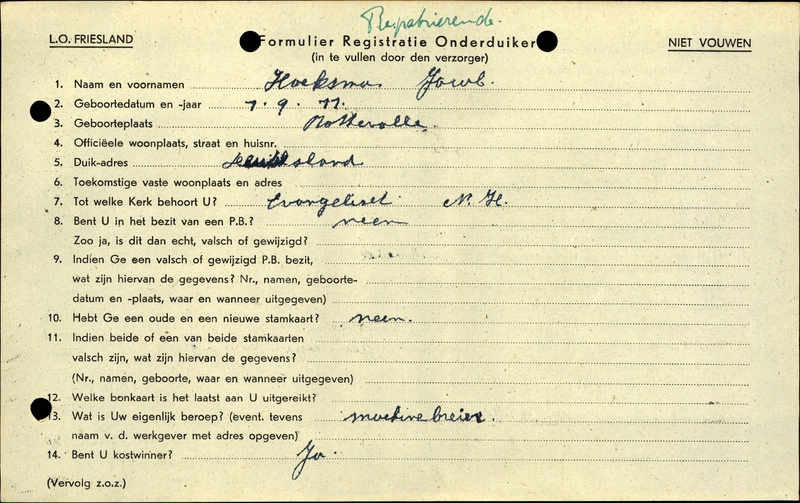 Repatrieerende.
L.O. FRIESLAND
Formulier Registratie Onderduiker
NIET VOUWEN
(in te vullen door den verzorger)
1. Naam en voornamen Hoeksma Jacob.
2. Geboortedatum en -jaar 7. 9. 11.
3. Geboorteplaats Rottevalle.
4. Officiëele woonplaats, straat en huisnr.
5. Duik-adres
6. Toekomstige vaste woonplaats en adres
7. Tot welke Kerk behoort U? Evangelisat N. H.
8. Bent U in het bezit van een P.B.? neen
Zoo ja, is dit dan echt, valsch of gewijzigd?
9. Indien Ge een valsch of gewijzigd P.B. bezit,
wat zijn hiervan de gegevens? Nr., namen, geboorte-
datum en -plaats, waar en wanneer uitgegeven)
10. Hebt Ge een oude en een nieuwe stamkaart? neen.
11. Indien beide of een van beide stamkaarten
valsch zijn, wat zijn hiervan de gegevens?
(Nr., namen, geboorte, waar en wanneer uitgegeven)
12. Welke bonkaart is het laatst aan U uitgereikt?
13. Wat is Uw eigenlijk beroep? (event. tevens machinebreier.
naam v. d. werkgever met adres opgeven)
14. Bent U kostwinner? Ja.
(Vervolg z.o.z.)